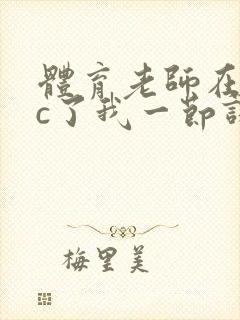 體育老師在
c了我一節課
梅里美